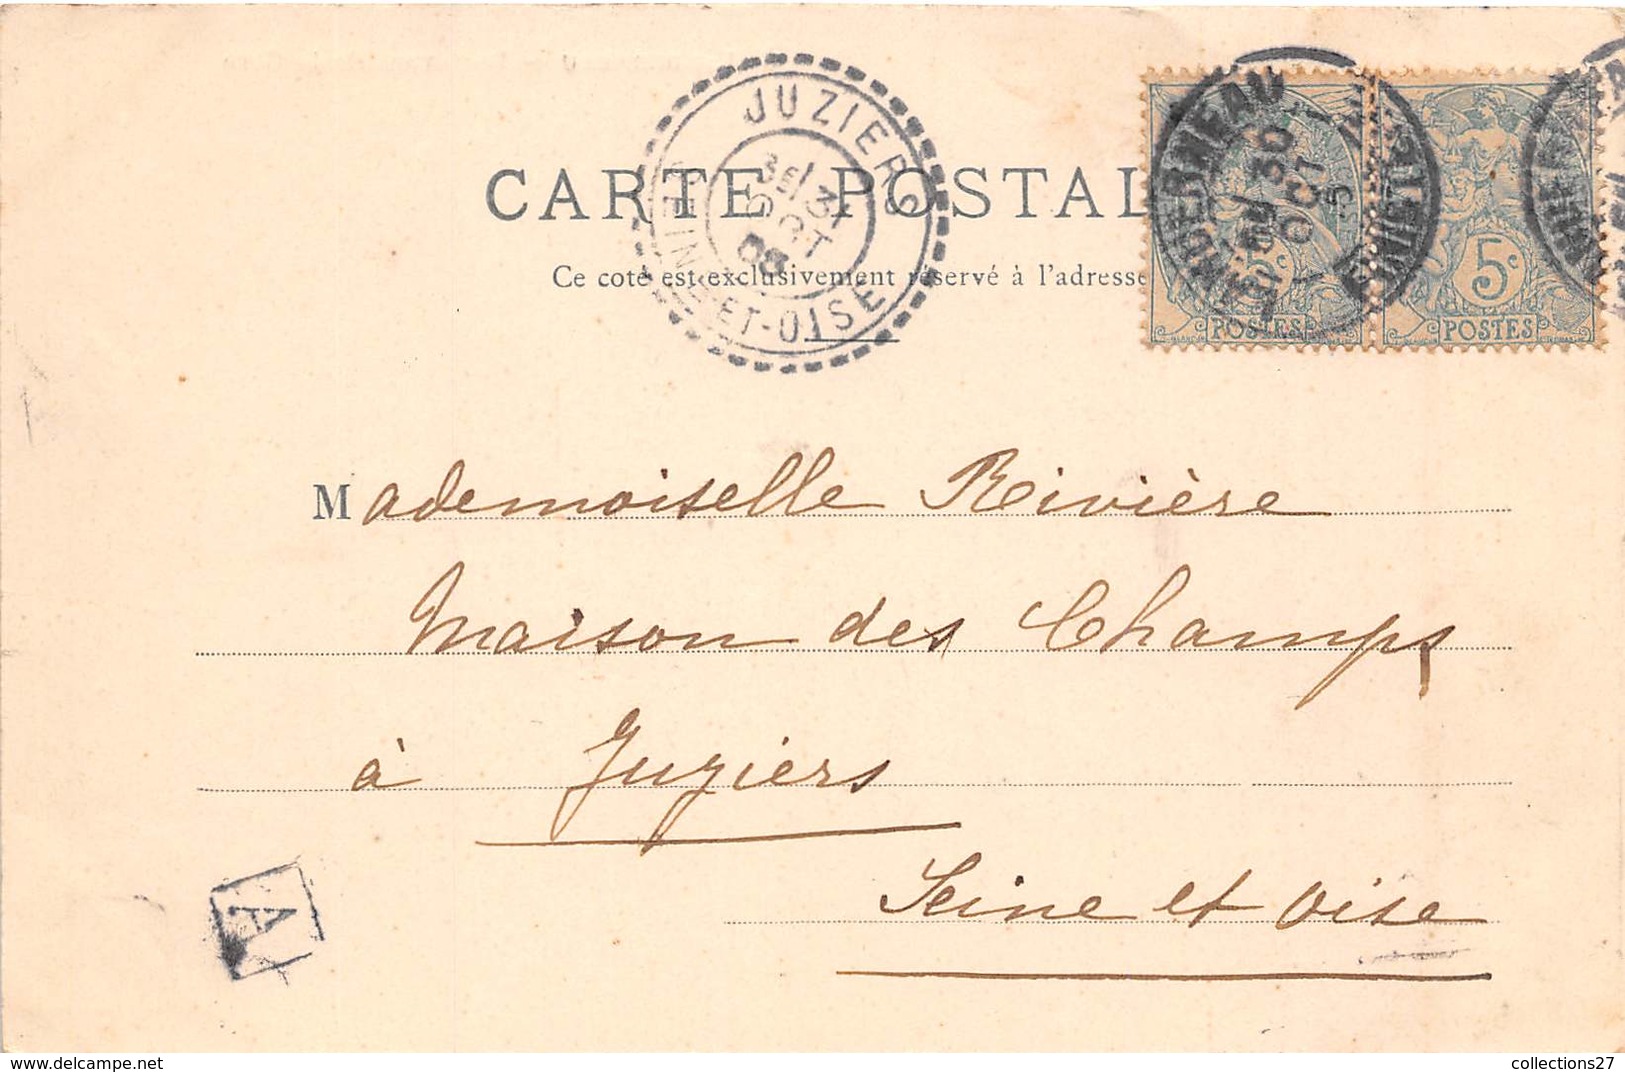 JUZIERS
3E / 31
OCT
03
SEINE-ET-OISE
CARTE POSTAL
Ce coté est exclusivement réservé à l'adresse
LANDERNEAU
30
OCT
5c
POSTES
5c
POSTES
Mademoiselle Rivière
Maison des Champs
à Juziers
Seine et Oise
A
https://www.delcampe.net
collections27